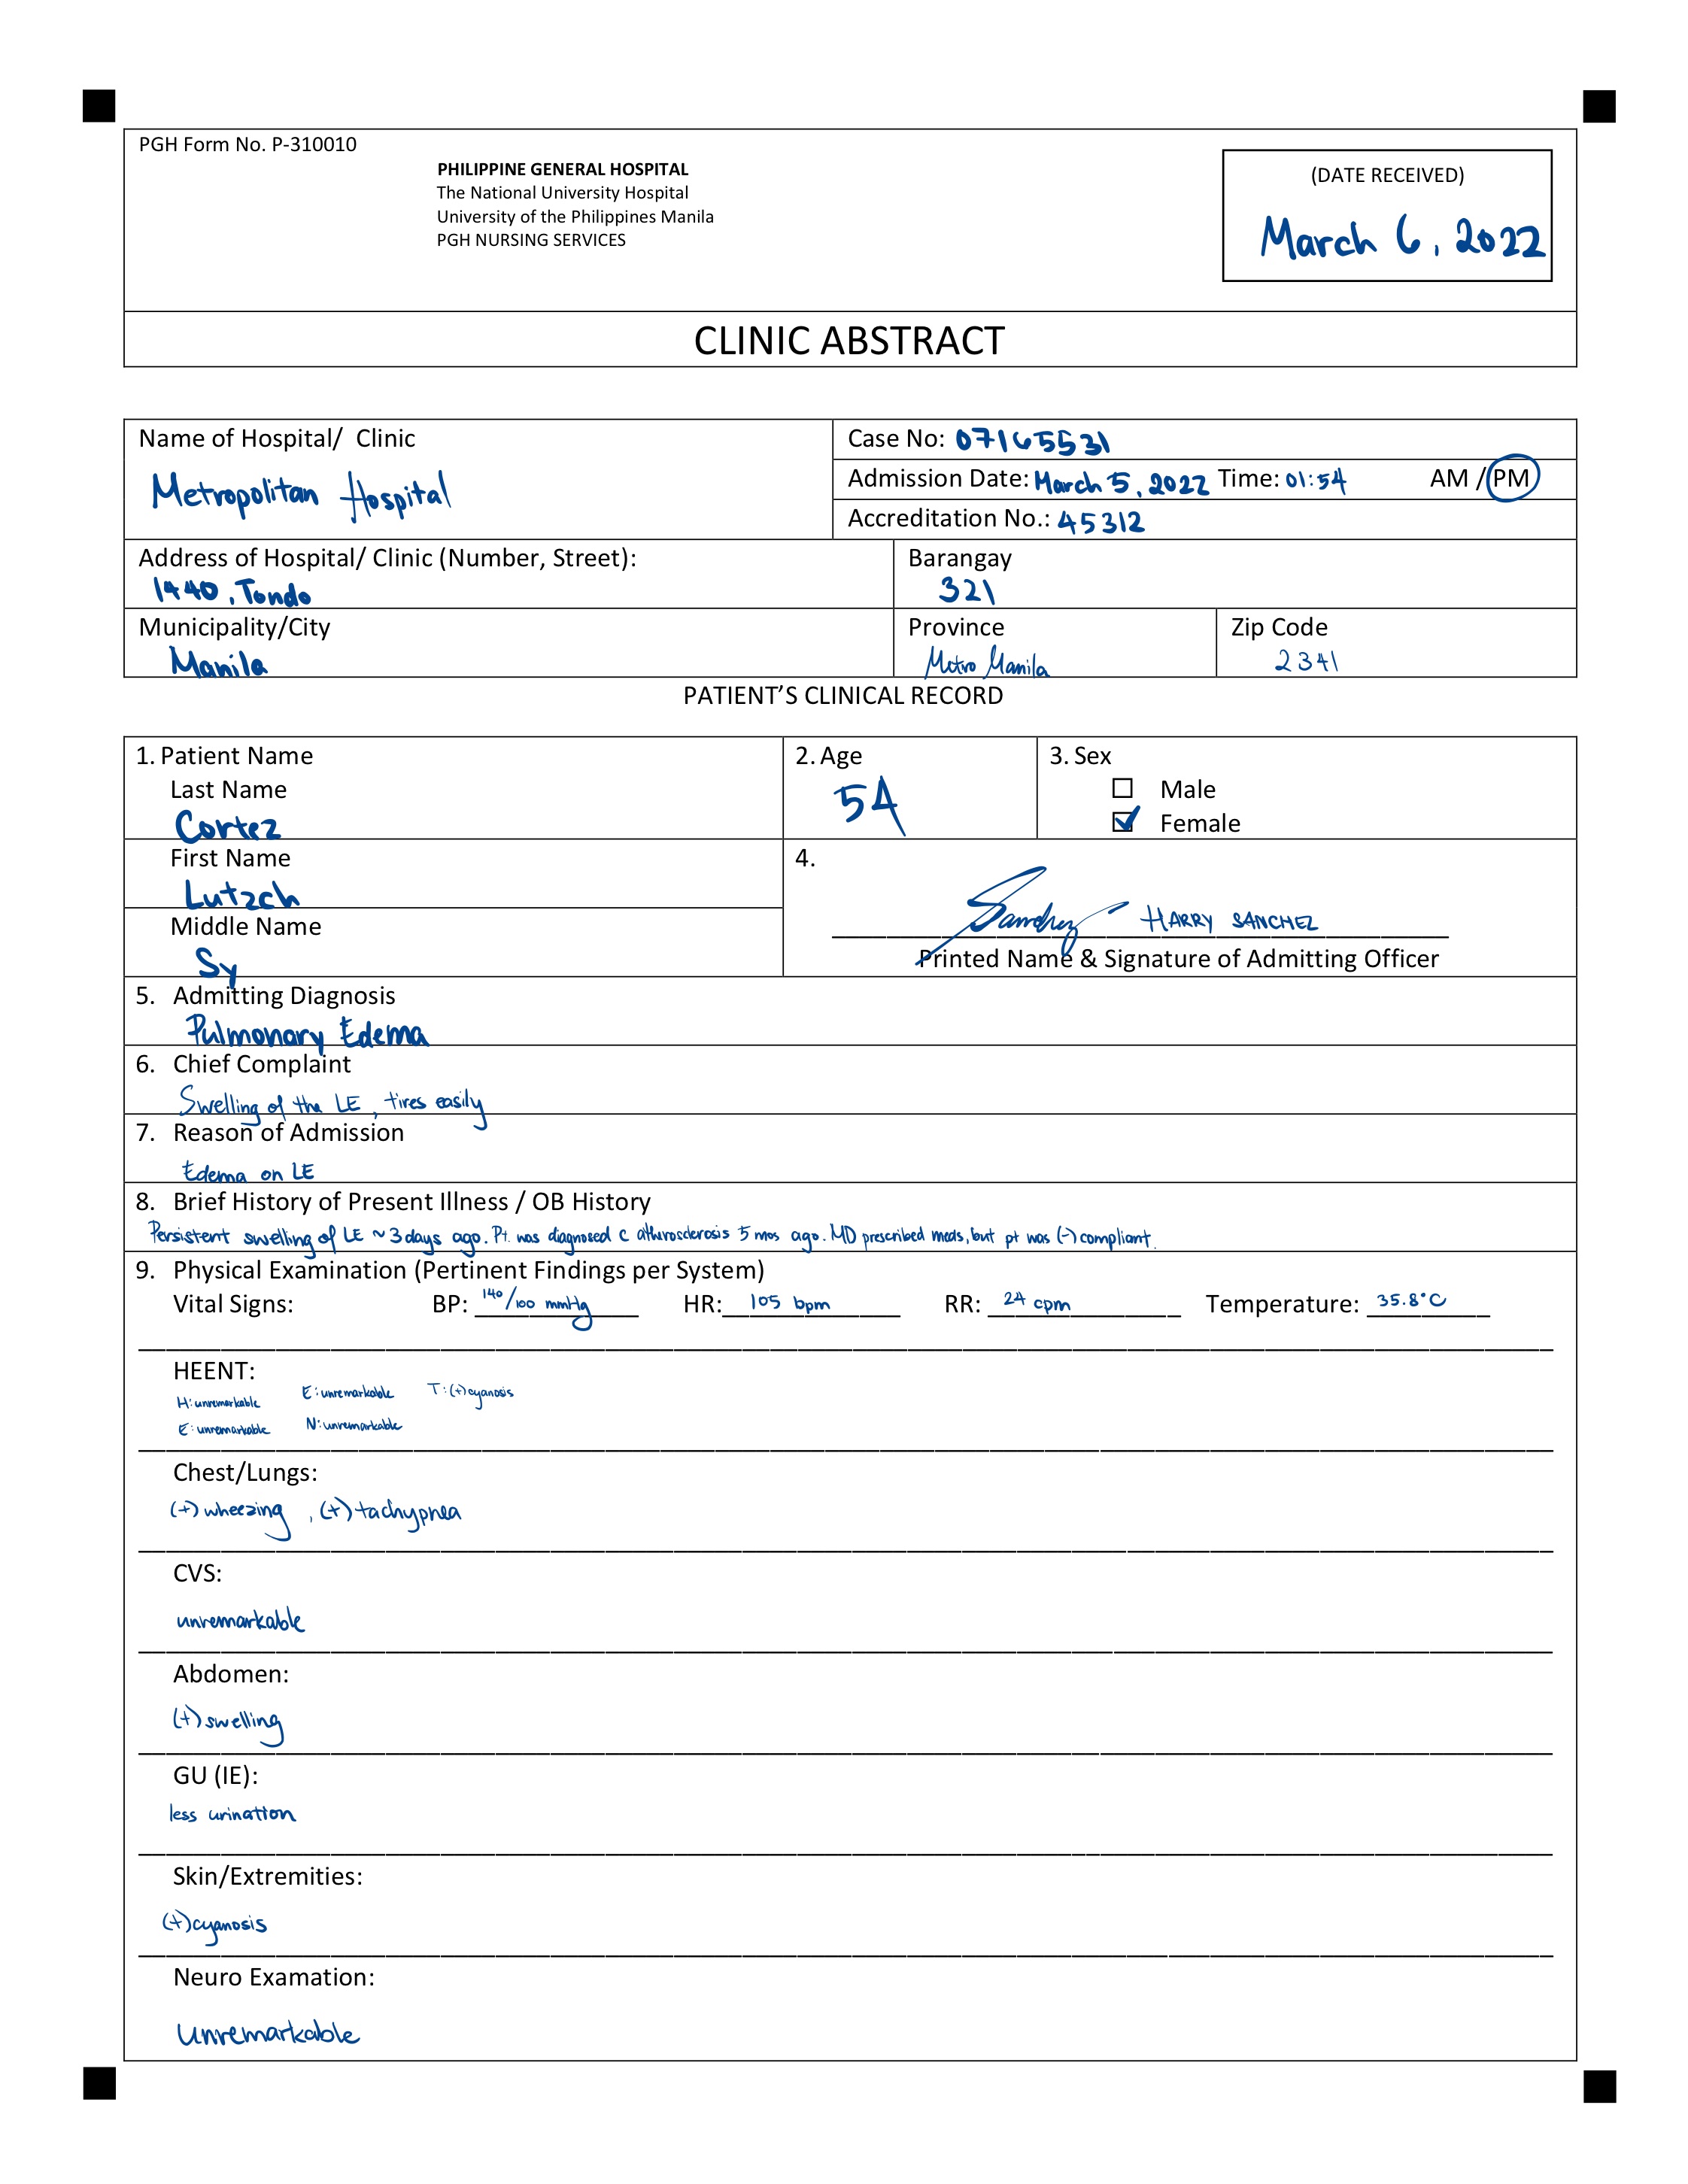 PGH Form No. P-310010
PHILIPPINE GENERAL HOSPITAL
The National University Hospital
University of the Philippines Manila
PGH NURSING SERVICES
(DATE RECEIVED)
March 6, 2022
CLINIC ABSTRACT
Name of Hospital/ Clinic
Metropolitan Hospital
Case No: 07165531
Admission Date: March 5, 2022 Time: 01:54 AM / PM
Accreditation No.: 45312
Address of Hospital/ Clinic (Number, Street):
1440, Tondo
Barangay
321
Municipality/City
Manila
Province
Metro Manila
Zip Code
2341
PATIENT'S CLINICAL RECORD
1. Patient Name
Last Name
Cortez
2. Age
54
3. Sex
☐ Male
☑ Female
First Name
Lutzch
Middle Name
Sy
4.
Sanchez HARRY SANCHEZ
Printed Name & Signature of Admitting Officer
5. Admitting Diagnosis
Pulmonary Edema
6. Chief Complaint
Swelling of the LE, tires easily
7. Reason of Admission
Edema on LE
8. Brief History of Present Illness / OB History
Persistent swelling of LE ~3 days ago. Pt. was diagnosed c atherosclerosis 5 mos ago. MD prescribed meds, but pt was (-) compliant.
9. Physical Examination (Pertinent Findings per System)
Vital Signs: BP: 140/100 mmHg HR: 105 bpm RR: 24 cpm Temperature: 35.8°C
HEENT:
H: unremarkable E: unremarkable T: (+) cyanosis
E: unremarkable N: unremarkable
Chest/Lungs:
(+) wheezing, (+) tachypnea
CVS:
unremarkable
Abdomen:
(+) swelling
GU (IE):
less urination
Skin/Extremities:
(+) cyanosis
Neuro Examation:
Unremarkable